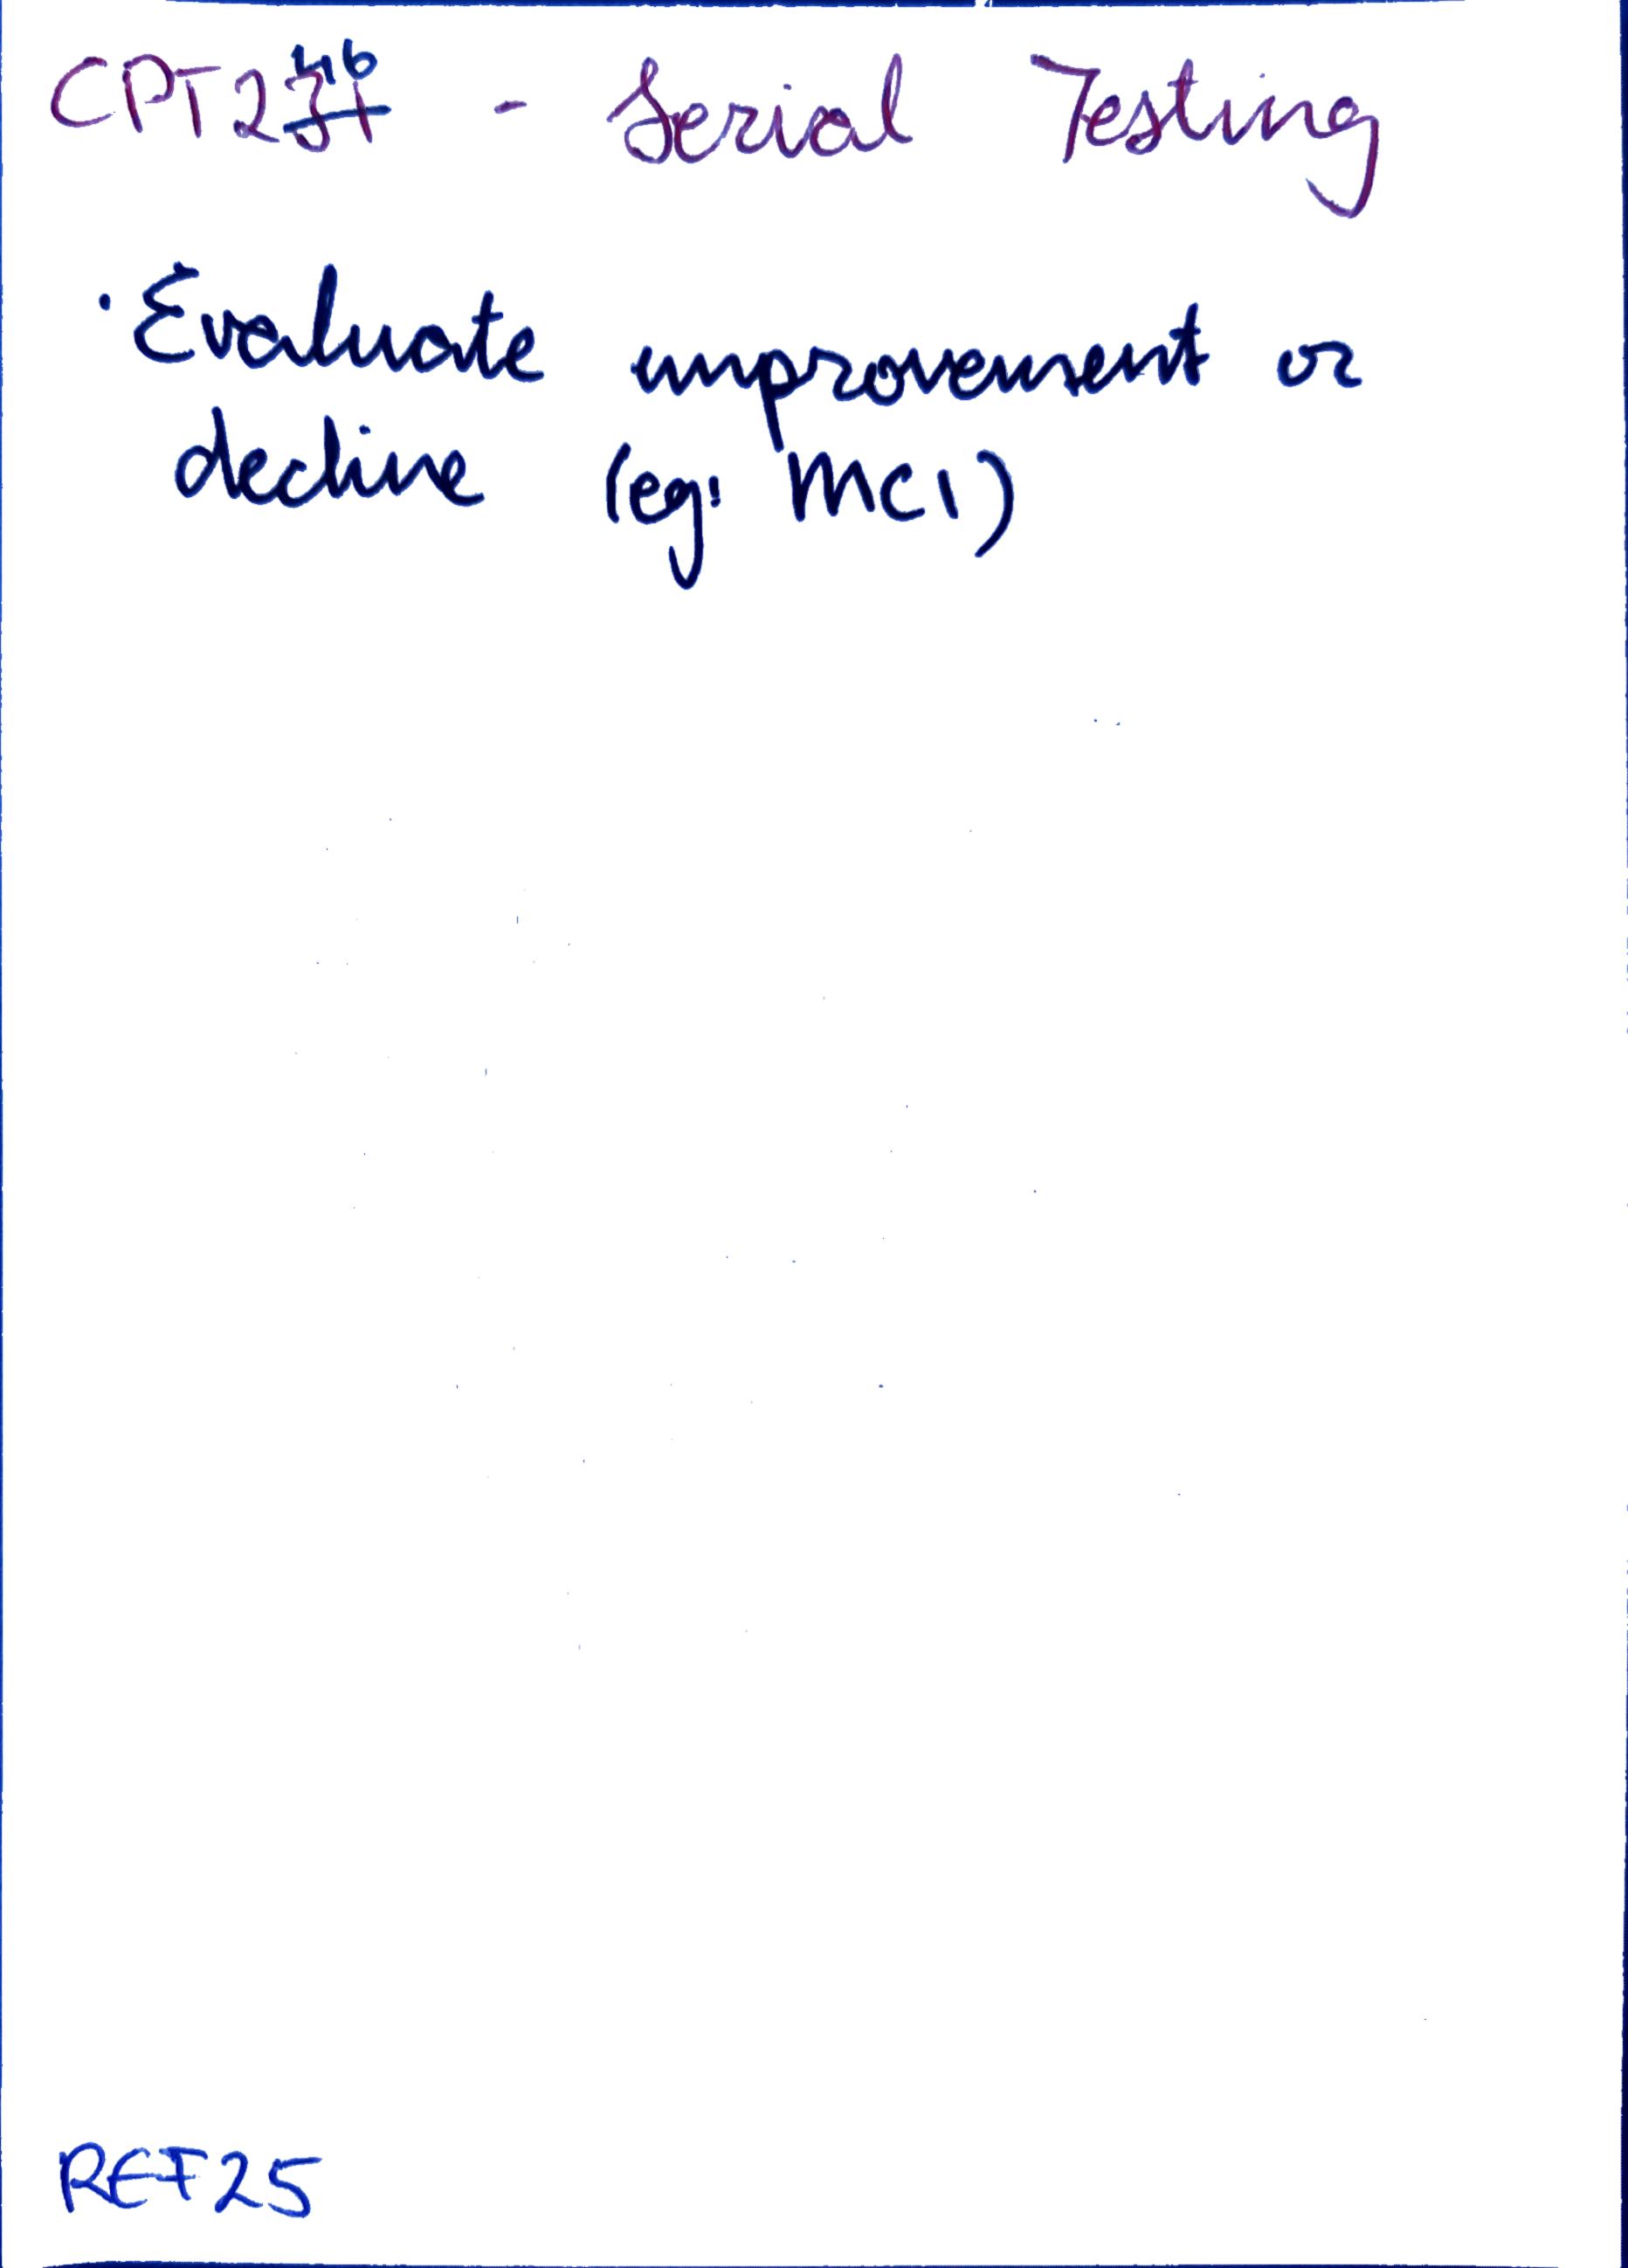 CPT246 - Serial Testing
· Evaluate improvement or
decline (eg: MCI)
REF25